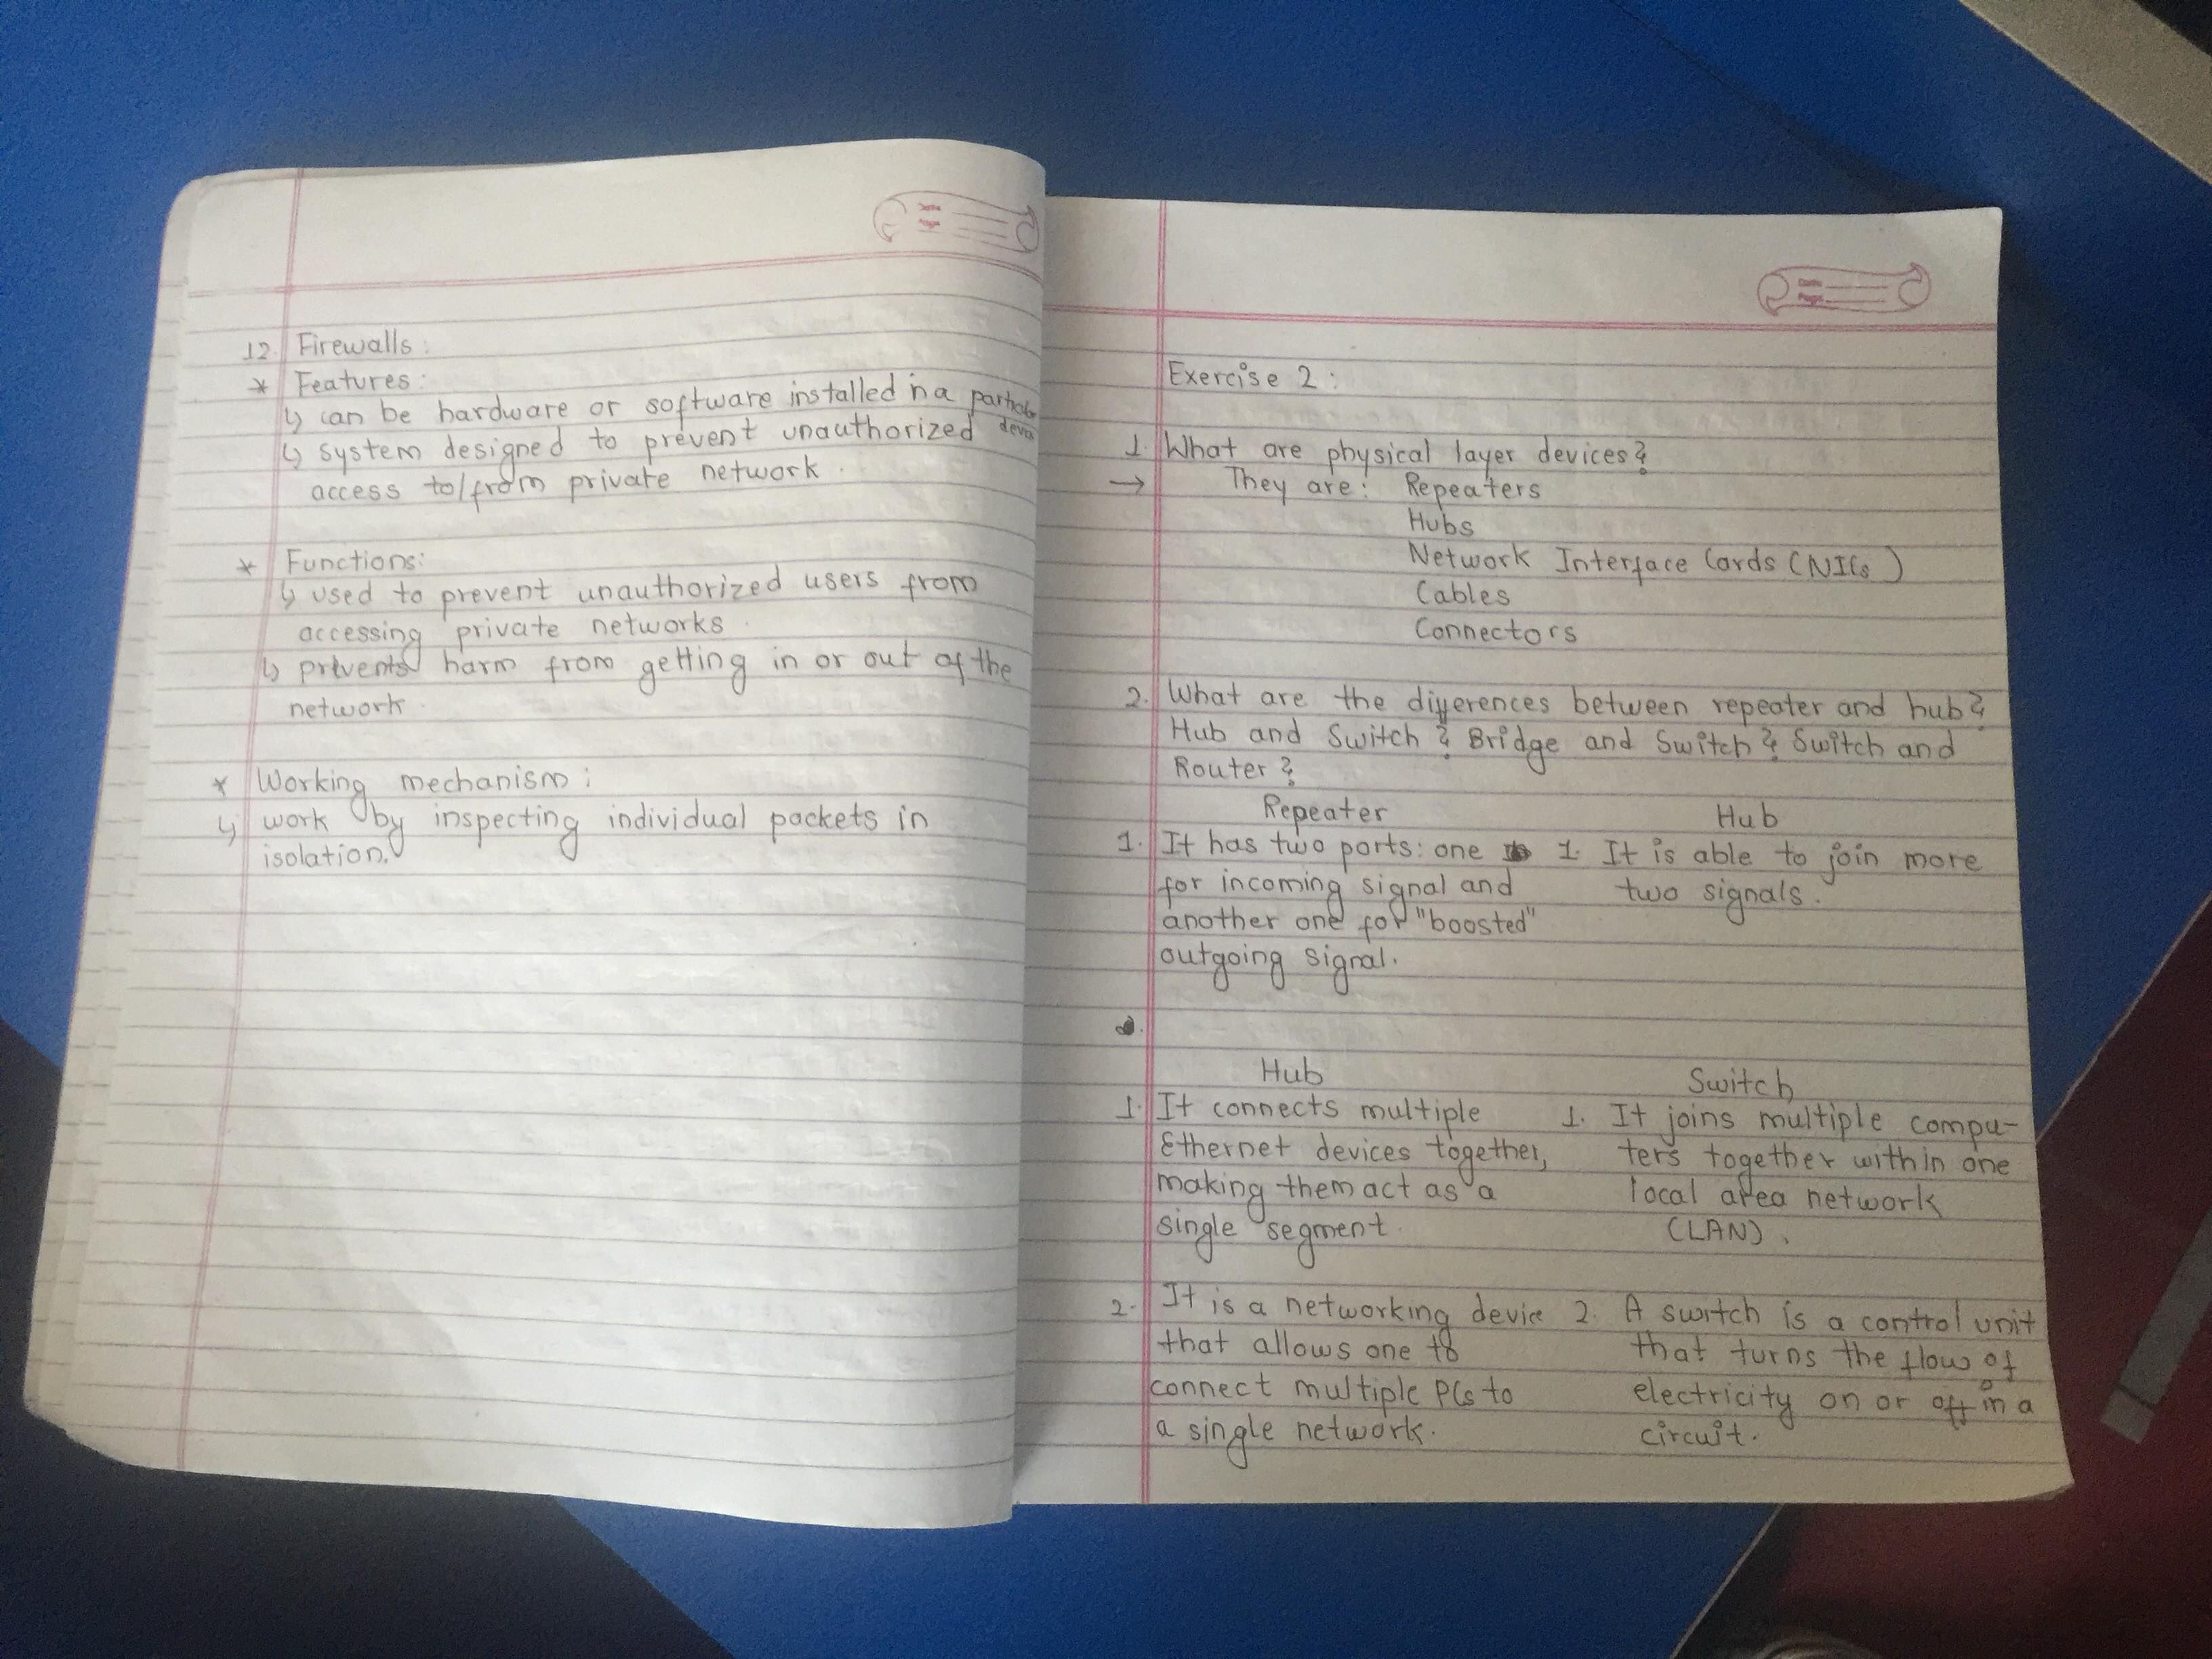 12. Firewalls:
* Features:
↳ can be hardware or software installed in a particular
device
↳ system designed to prevent unauthorized
access to/from private network.
* Functions:
↳ used to prevent unauthorized users from
accessing private networks.
↳ prevents harm from getting in or out of the
network.
* Working mechanism:
↳ work by inspecting individual packets in
isolation.
Date
Page
Exercise 2:
1. What are physical layer devices?
→ They are: Repeaters
Hubs
Network Interface Cards (NICs)
Cables
Connectors
2. What are the differences between repeater and hub?
Hub and Switch? Bridge and Switch? Switch and
Router?
Repeater
1. It has two ports: one
for incoming signal and
another one for "boosted"
outgoing signal.
Hub
1. It is able to join more
two signals.
Hub
1. It connects multiple
Ethernet devices together,
making them act as a
single segment.
2. It is a networking device
that allows one to
connect multiple PCs to
a single network.
Switch
1. It joins multiple compu-
ters together within one
local area network
(LAN).
2. A switch is a control unit
that turns the flow of
electricity on or off in a
circuit.